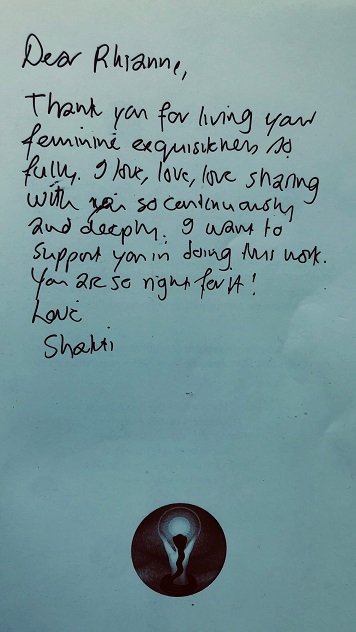 Dear Rhianne,
Thank you for living your
feminine exquisiteness so
fully. I love, love, love sharing
with you so continuously
and deeply. I want to
support you in doing this work.
You are so right for it!
Love
Shakti